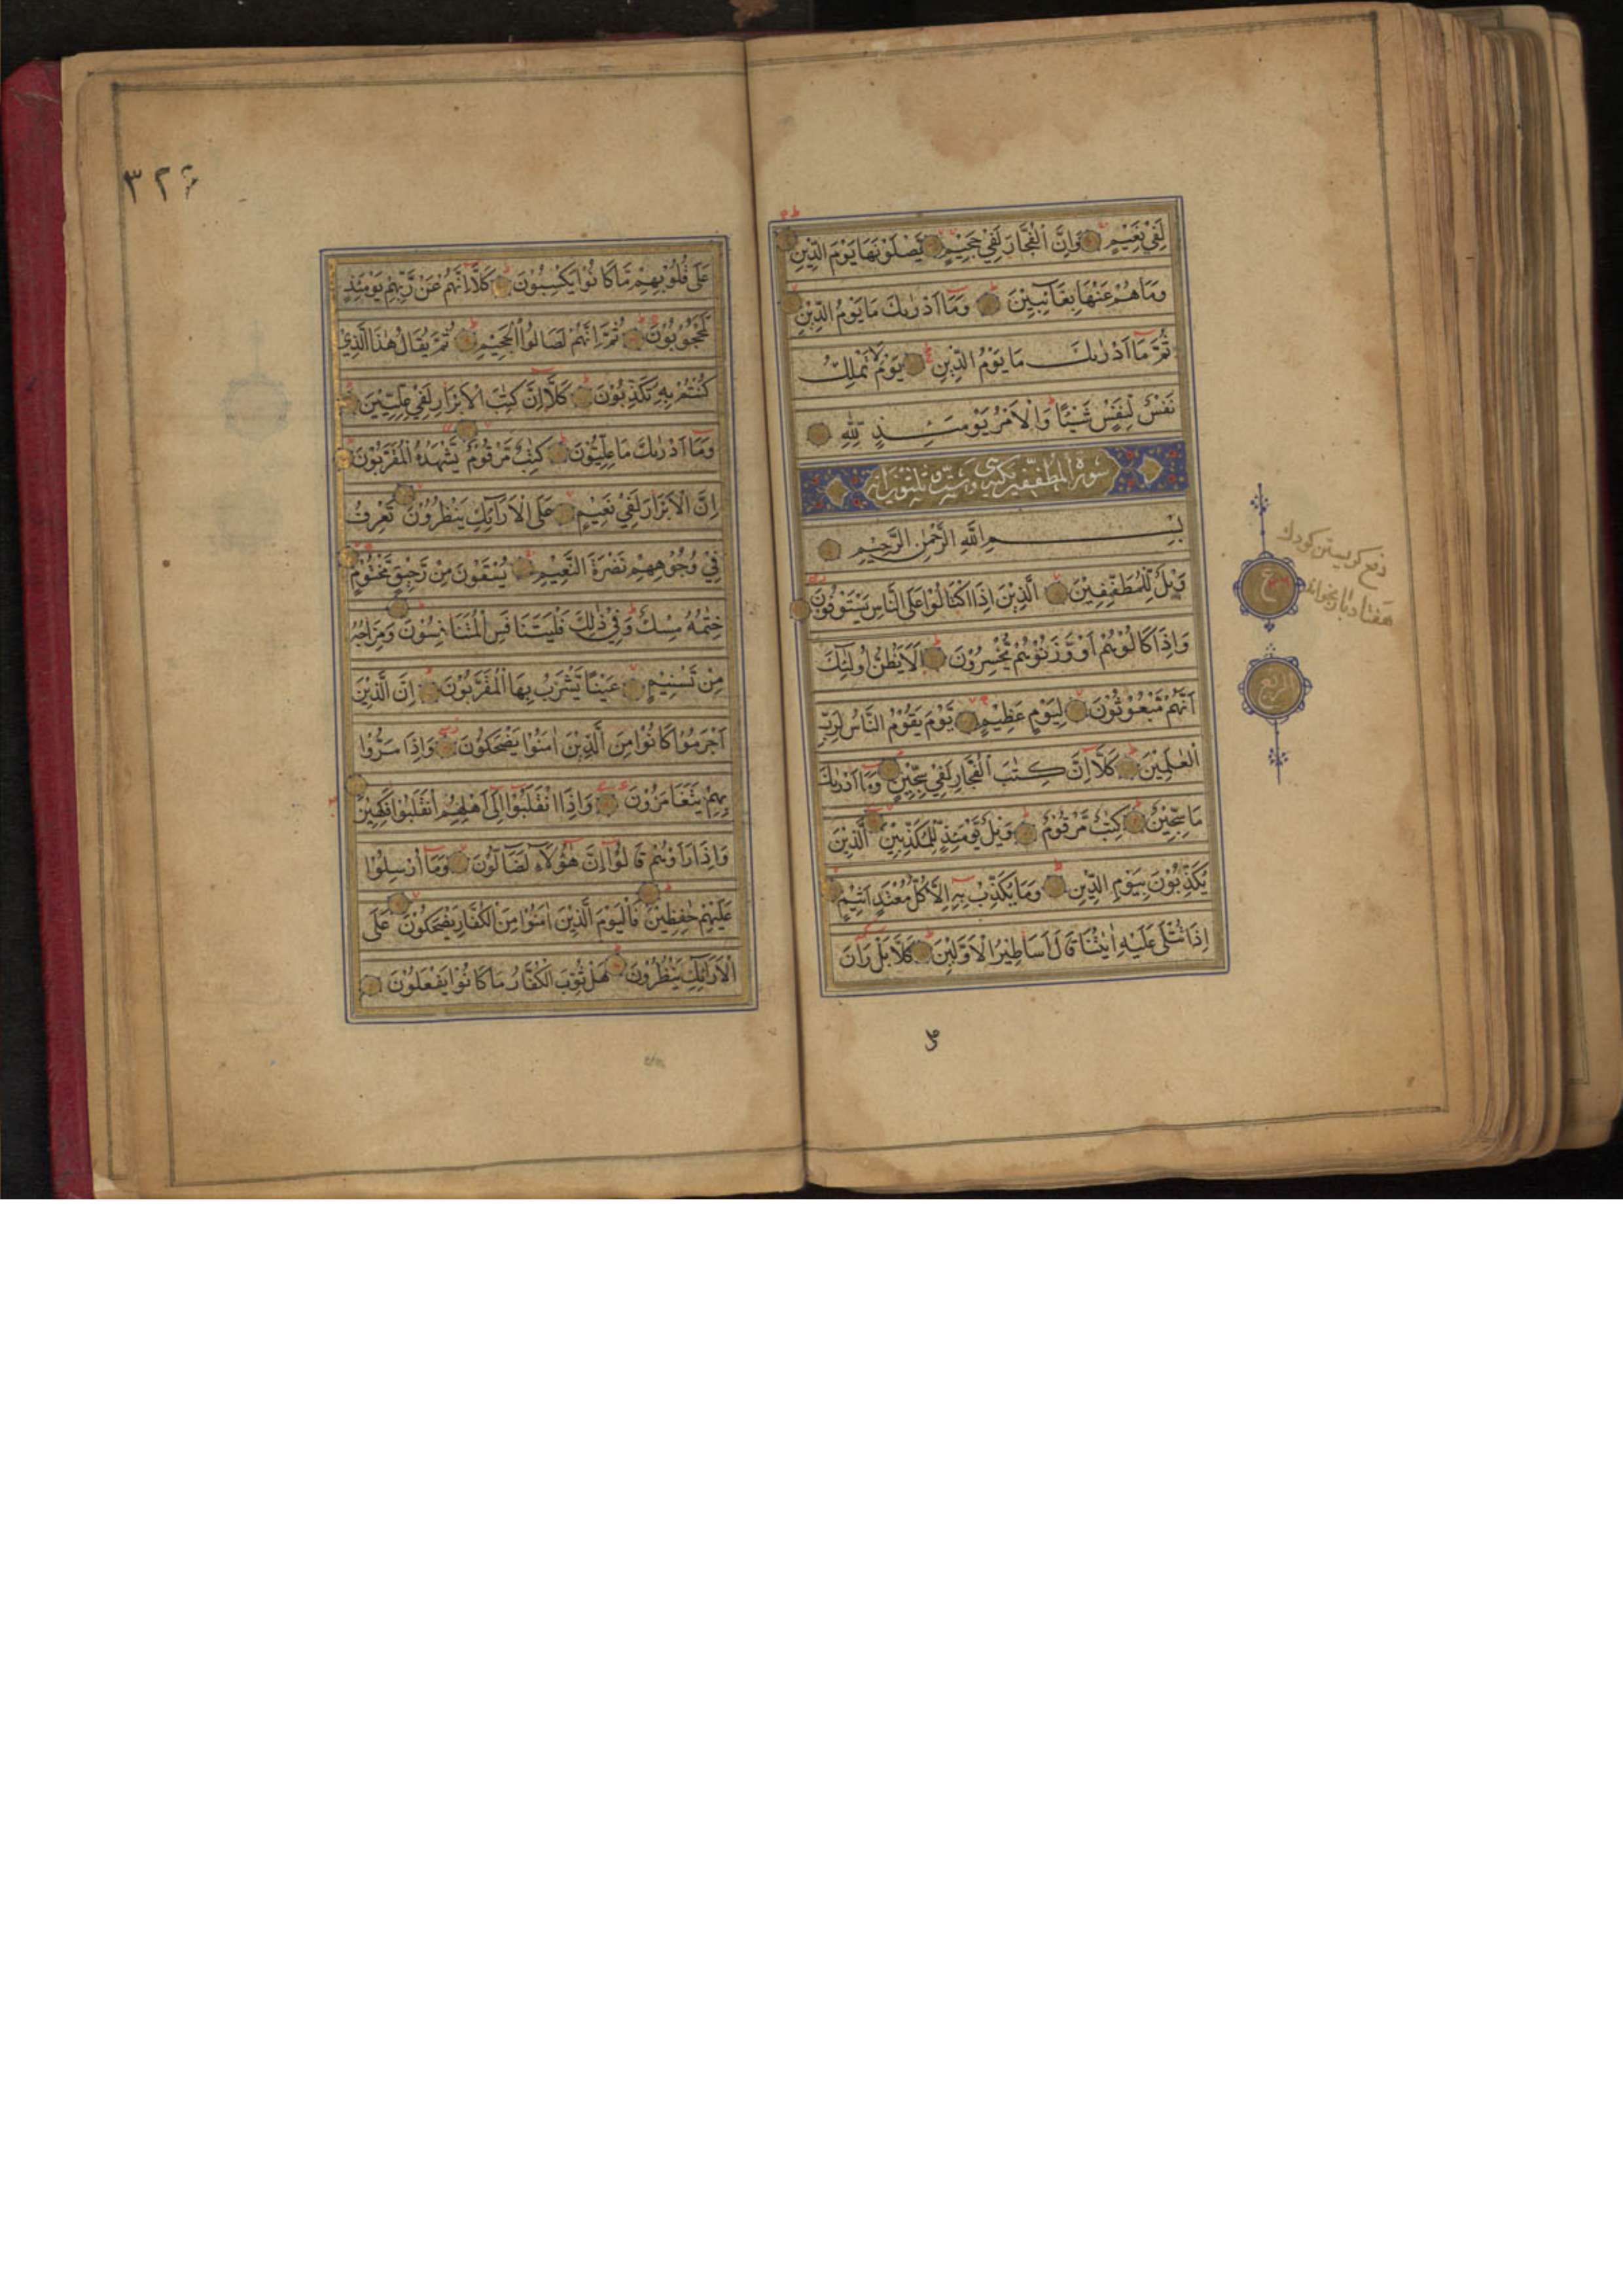 لَفِيْ نَعِيْمٍ وَاِنَّ الْفُجَّارَ لَفِيْ جَحِيْمٍ يَصْلَوْنَهَا يَوْمَ الدِّيْنِ
وَمَا هُمْ عَنْهَا بِغَآئِبِيْنَ وَمَآ اَدْرٰىكَ مَا يَوْمُ الدِّيْنِ
ثُمَّ مَآ اَدْرٰىكَ مَا يَوْمُ الدِّيْنِ يَوْمَ لَا تَمْلِكُ
نَفْسٌ لِّنَفْسٍ شَيْئًا وَالْاَمْرُ يَوْمَئِذٍ لِلّٰهِ
سورة المطففين
بِسْمِ اللّٰهِ الرَّحْمٰنِ الرَّحِيْمِ
وَيْلٌ لِّلْمُطَفِّفِيْنَ الَّذِيْنَ اِذَا اكْتَالُوْا عَلَى النَّاسِ يَسْتَوْفُوْنَ
وَاِذَا كَالُوْهُمْ اَوْ وَّزَنُوْهُمْ يُخْسِرُوْنَ اَلَا يَظُنُّ اُولٰٓئِكَ
اَنَّهُمْ مَّبْعُوْثُوْنَ لِيَوْمٍ عَظِيْمٍ يَّوْمَ يَقُوْمُ النَّاسُ لِرَبِّ
الْعٰلَمِيْنَ كَلَّآ اِنَّ كِتٰبَ الْفُجَّارِ لَفِيْ سِجِّيْنٍ وَمَآ اَدْرٰىكَ
مَا سِجِّيْنٌ كِتٰبٌ مَّرْقُوْمٌ وَيْلٌ يَّوْمَئِذٍ لِّلْمُكَذِّبِيْنَ الَّذِيْنَ
يُكَذِّبُوْنَ بِيَوْمِ الدِّيْنِ وَمَا يُكَذِّبُ بِهٖ اِلَّا كُلُّ مُعْتَدٍ اَثِيْمٍ
اِذَا تُتْلٰى عَلَيْهِ اٰيٰتُنَا قَالَ اَسَاطِيْرُ الْاَوَّلِيْنَ كَلَّا بَلْ رَانَ
هفتاد بار بخواند
ع
الربع
٣٢٤
عَلٰى قُلُوْبِهِمْ مَّا كَانُوْا يَكْسِبُوْنَ كَلَّآ اِنَّهُمْ عَنْ رَّبِّهِمْ يَوْمَئِذٍ
لَّمَحْجُوْبُوْنَ ثُمَّ اِنَّهُمْ لَصَالُوا الْجَحِيْمِ ثُمَّ يُقَالُ هٰذَا الَّذِيْ
كُنْتُمْ بِهٖ تُكَذِّبُوْنَ كَلَّآ اِنَّ كِتٰبَ الْاَبْرَارِ لَفِيْ عِلِّيِّيْنَ
وَمَآ اَدْرٰىكَ مَا عِلِّيُّوْنَ كِتٰبٌ مَّرْقُوْمٌ يَّشْهَدُهُ الْمُقَرَّبُوْنَ
اِنَّ الْاَبْرَارَ لَفِيْ نَعِيْمٍ عَلَى الْاَرَآئِكِ يَنْظُرُوْنَ تَعْرِفُ
فِيْ وُجُوْهِهِمْ نَضْرَةَ النَّعِيْمِ يُسْقَوْنَ مِنْ رَّحِيْقٍ مَّخْتُوْمٍ
خِتٰمُهٗ مِسْكٌ وَفِيْ ذٰلِكَ فَلْيَتَنَافَسِ الْمُتَنَافِسُوْنَ وَمِزَاجُهٗ
مِنْ تَسْنِيْمٍ عَيْنًا يَّشْرَبُ بِهَا الْمُقَرَّبُوْنَ اِنَّ الَّذِيْنَ
اَجْرَمُوْا كَانُوْا مِنَ الَّذِيْنَ اٰمَنُوْا يَضْحَكُوْنَ وَاِذَا مَرُّوْا
بِهِمْ يَتَغَامَزُوْنَ وَاِذَا انْقَلَبُوْٓا اِلٰٓى اَهْلِهِمُ انْقَلَبُوْا فَكِهِيْنَ
وَاِذَا رَاَوْهُمْ قَالُوْٓا اِنَّ هٰٓؤُلَآءِ لَضَآلُّوْنَ وَمَآ اُرْسِلُوْا
عَلَيْهِمْ حٰفِظِيْنَ فَالْيَوْمَ الَّذِيْنَ اٰمَنُوْا مِنَ الْكُفَّارِ يَضْحَكُوْنَ عَلَى
الْاَرَآئِكِ يَنْظُرُوْنَ هَلْ ثُوِّبَ الْكُفَّارُ مَا كَانُوْا يَفْعَلُوْنَ